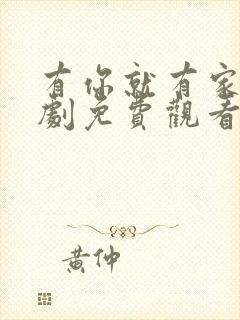 有你就有家
劇免費觀看
黃仲